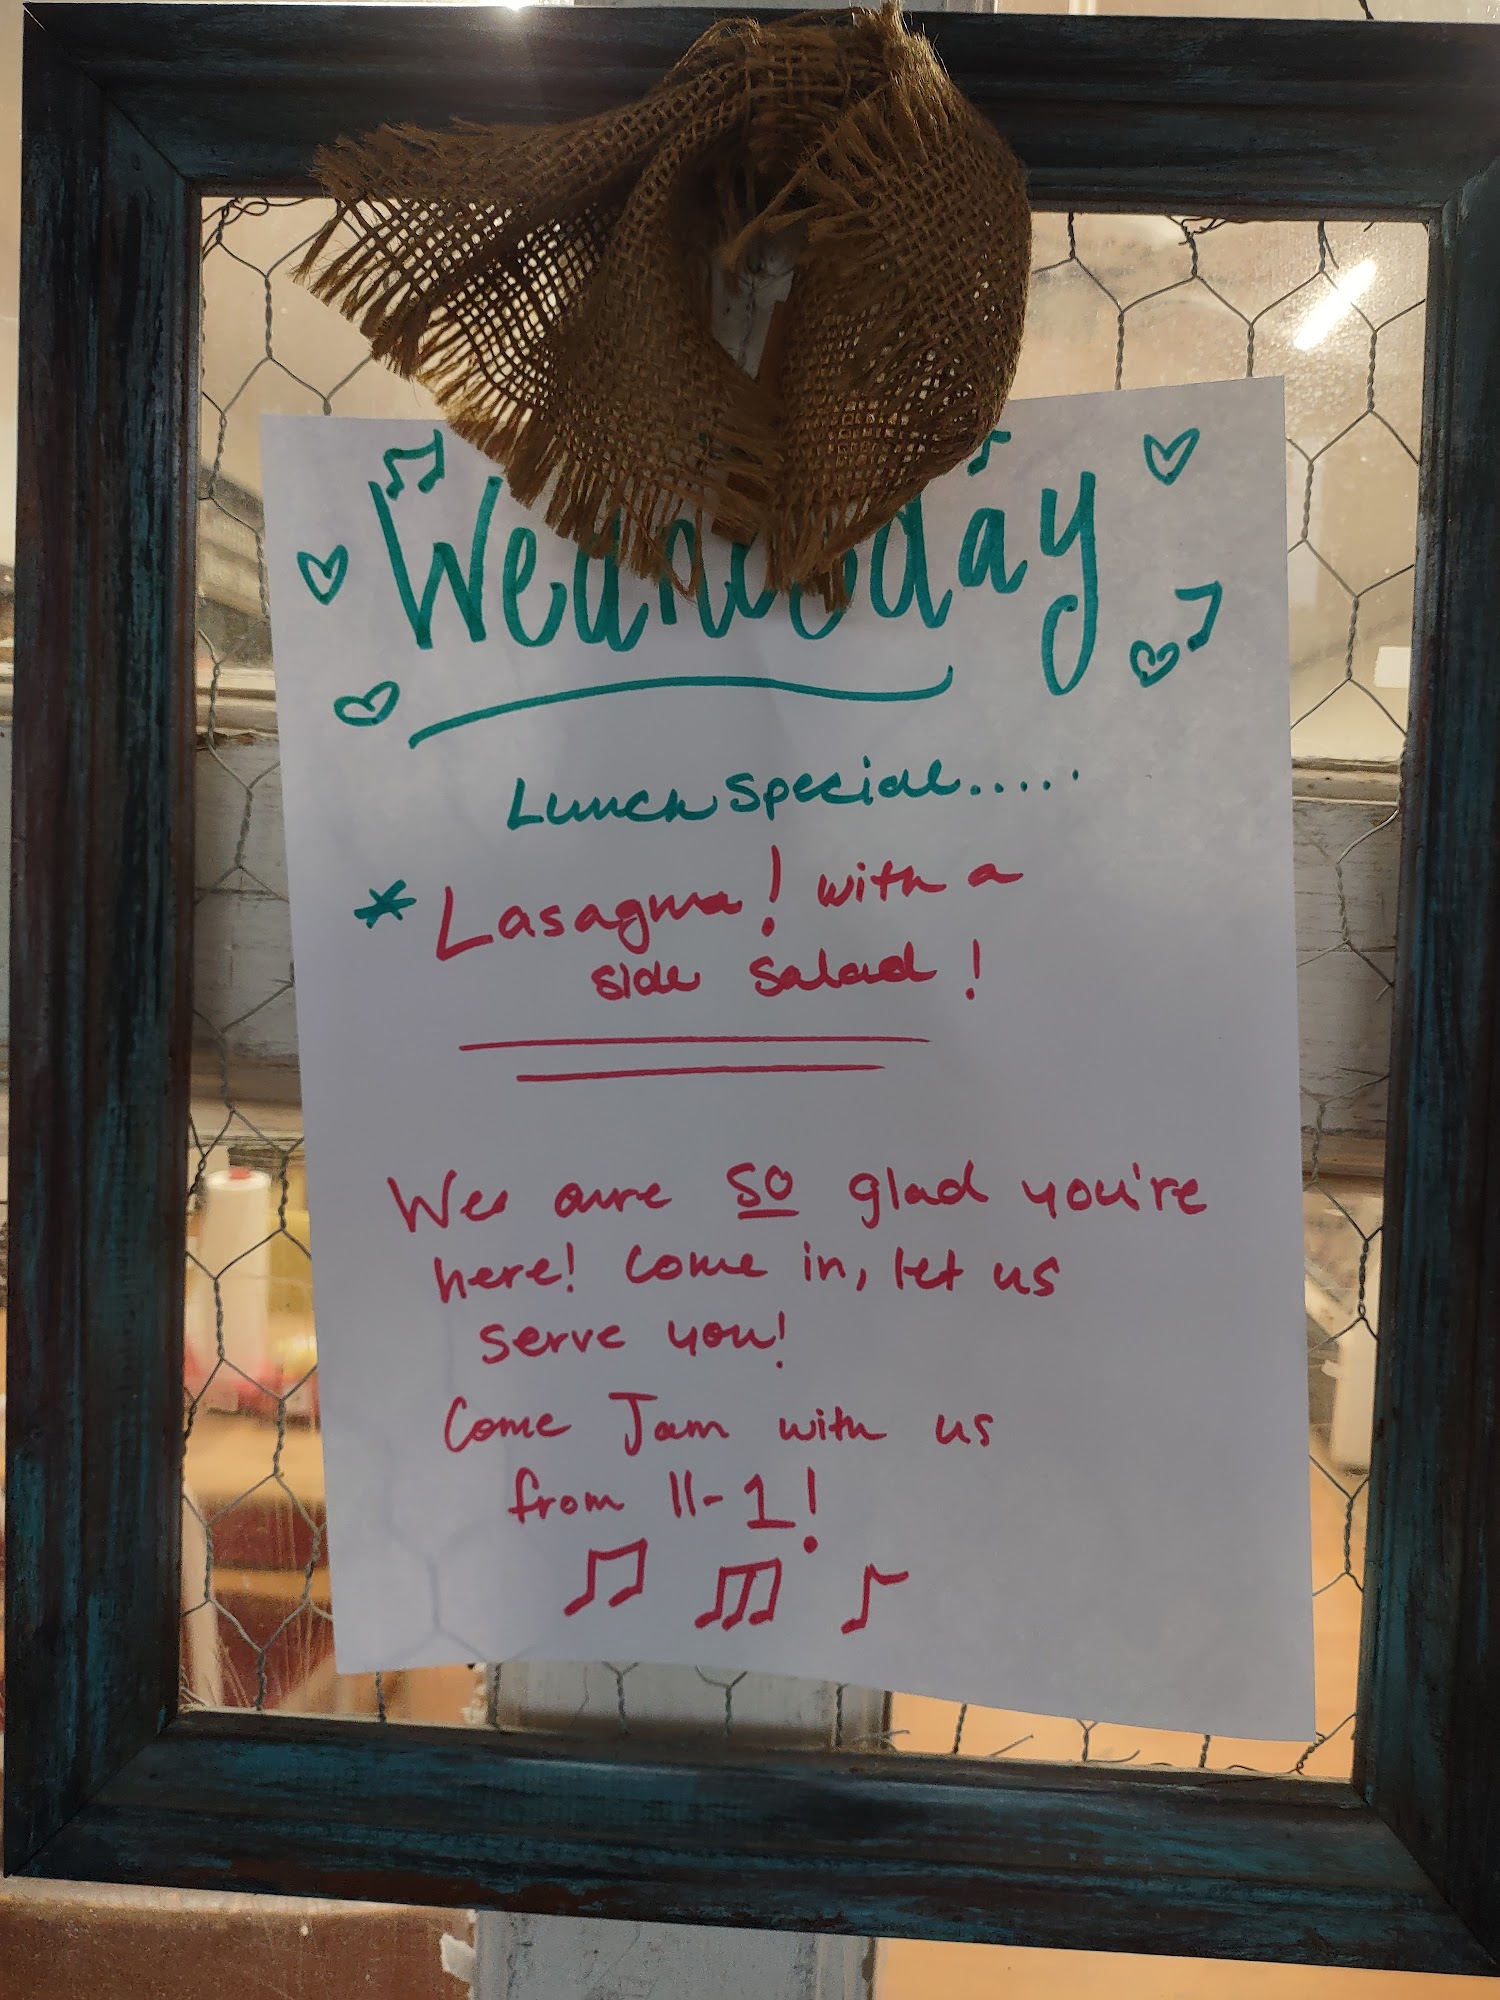 Wednesday
Lunch Special.....
* Lasagna! with a
side salad!
We are so glad you're
here! Come in, let us
serve you!
Come Jam with us
from 11-1!